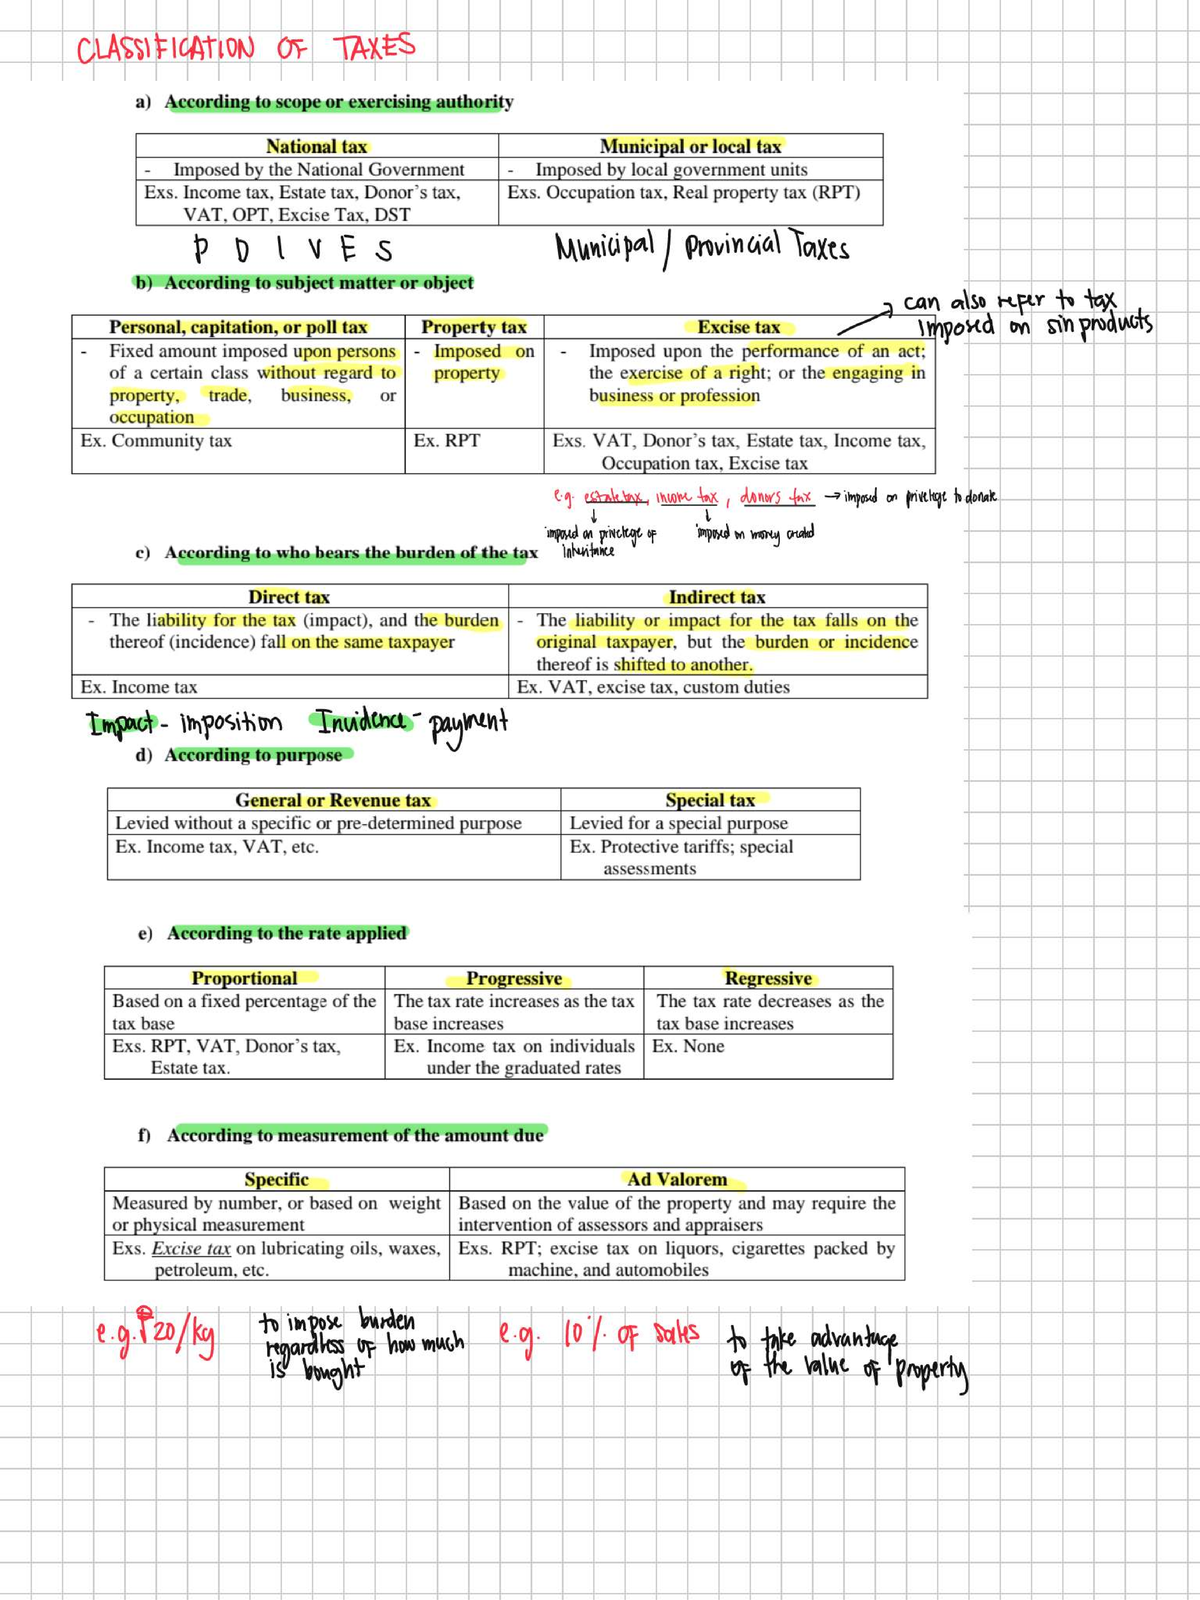 CLASSIFICATION OF TAXES
a) According to scope or exercising authority
National tax
Municipal or local tax
- Imposed by the National Government
- Imposed by local government units
Exs. Income tax, Estate tax, Donor's tax,
VAT, OPT, Excise Tax, DST
Exs. Occupation tax, Real property tax (RPT)
P D I V E S
Municipal / Provincial Taxes
b) According to subject matter or object
can also refer to tax
imposed on sin products
Personal, capitation, or poll tax
Property tax
Excise tax
- Fixed amount imposed upon persons
of a certain class without regard to
property, trade, business, or
occupation
- Imposed on
property
- Imposed upon the performance of an act;
the exercise of a right; or the engaging in
business or profession
Ex. Community tax
Ex. RPT
Exs. VAT, Donor's tax, Estate tax, Income tax,
Occupation tax, Excise tax
e.g. estate tax, income tax, donors tax → imposed on privelege to donate
imposed on privelege of
inheritance
imposed on money created
c) According to who bears the burden of the tax
Direct tax
Indirect tax
- The liability for the tax (impact), and the burden
thereof (incidence) fall on the same taxpayer
- The liability or impact for the tax falls on the
original taxpayer, but the burden or incidence
thereof is shifted to another.
Ex. Income tax
Ex. VAT, excise tax, custom duties
Impact - imposition Incidence - payment
d) According to purpose
General or Revenue tax
Special tax
Levied without a specific or pre-determined purpose
Levied for a special purpose
Ex. Income tax, VAT, etc.
Ex. Protective tariffs; special
assessments
e) According to the rate applied
Proportional
Progressive
Regressive
Based on a fixed percentage of the
tax base
The tax rate increases as the tax
base increases
The tax rate decreases as the
tax base increases
Exs. RPT, VAT, Donor's tax,
Estate tax.
Ex. Income tax on individuals
under the graduated rates
Ex. None
f) According to measurement of the amount due
Specific
Ad Valorem
Measured by number, or based on weight
or physical measurement
Based on the value of the property and may require the
intervention of assessors and appraisers
Exs. Excise tax on lubricating oils, waxes,
petroleum, etc.
Exs. RPT; excise tax on liquors, cigarettes packed by
machine, and automobiles
e.g. ₱20/kg
to impose burden
regardless of how much
is bought
e.g. 10% of sales
to take advantage
of the value of property